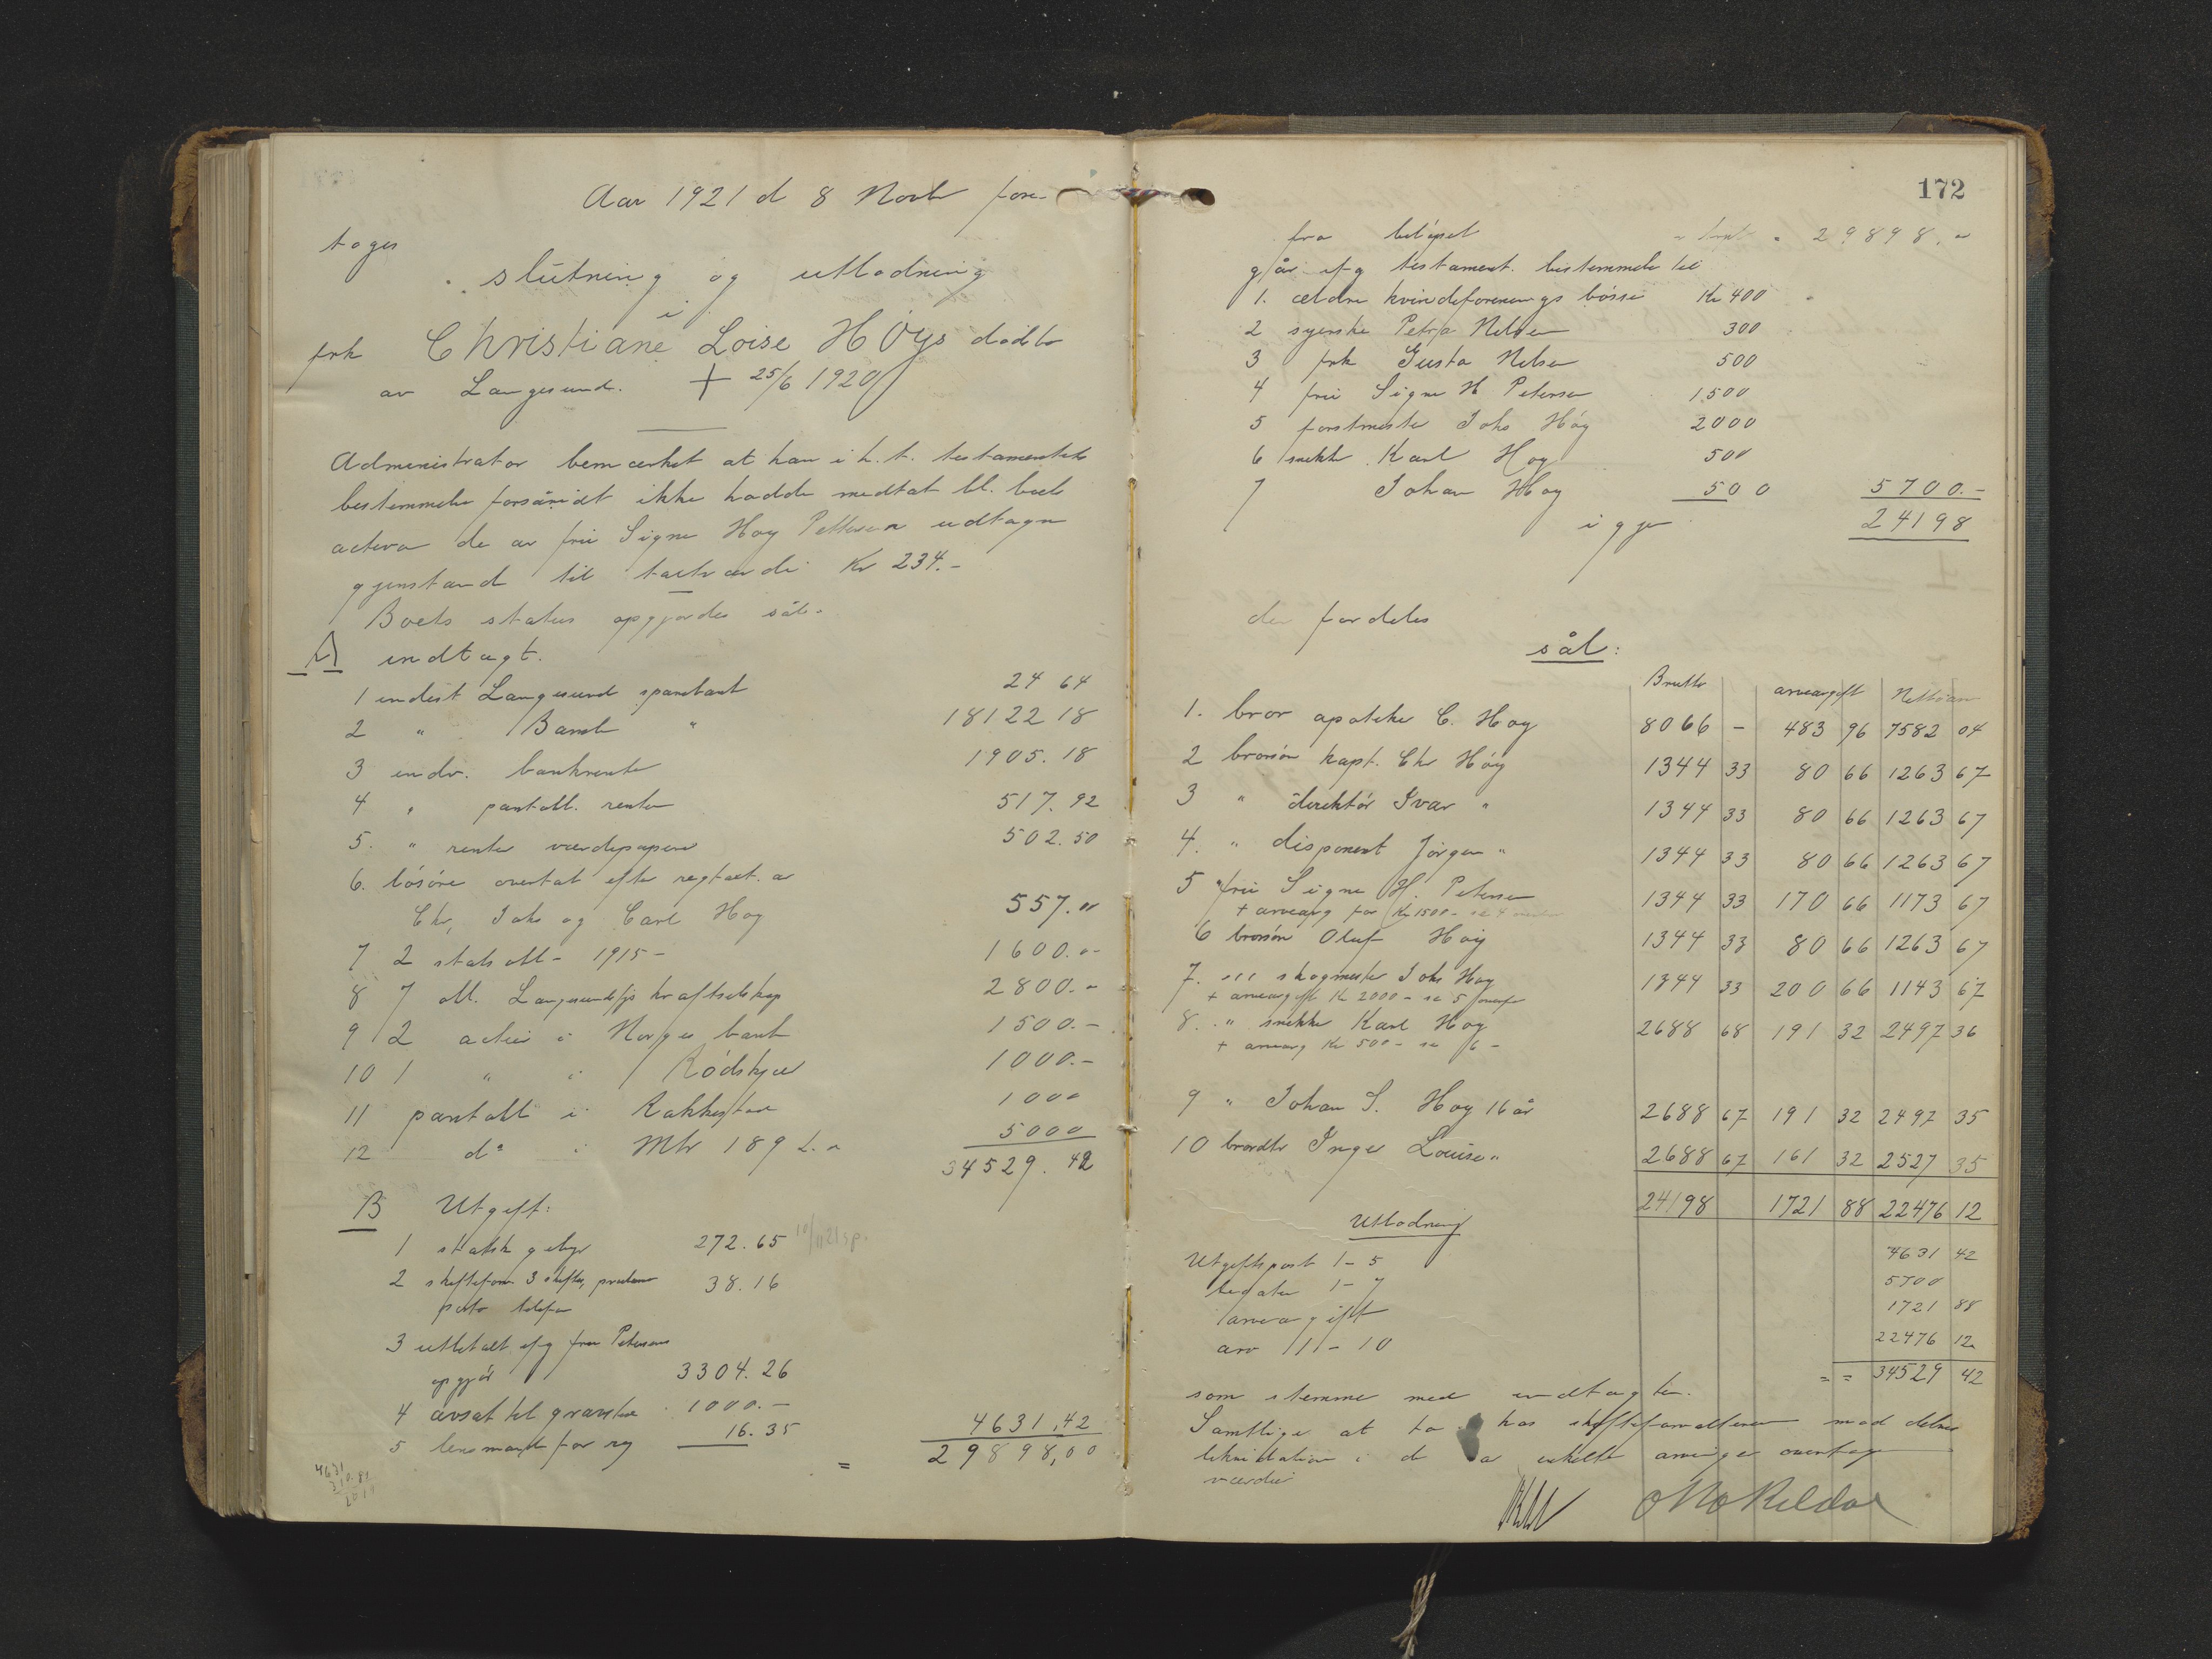 Aar 1921 d 8 Novbr fore-
tages
slutning og utlodning
i
frk Christiane Loise Höys dødsbo
av Langesund. + 25/6 1920
Administrator bemærket at han i h.t. testamentets
bestemmelse forsåvidt ikke hadde medtat bl. boets
activa de av fru Signe Høy Pettersen udtagne
gjenstand til takstværdi Kr 234.-
Boets status opgjordes sål.
A indtægt.
1 indest Langesund sparebank 24 64
2 " Bamble " 18122 18
3 indv. bankrente 1905.18
4 " pantobl. renter 517.92
5. " renter værdipapirer 502.50
6. løsøre overtat efter regtakt. av
Chr, Johs og Carl Høy 557.00
7 2 statsobl - 1915 - 1600.-
8 7 obl. Langesundsfjs kraftselskap 2800.-
9 2 actier i Norges bank 1500.-
10 1 " i Rödskjær 1000.-
11 pantobl i Rakkestad 1000
12 do i Mtr 189 L.a 5000
34529.42
B Utgift:
1 statsk gebyr 272.65 10/11 21 sp.
2 skifteforv 3 skifter, proclama 38.16
porto telefon
3 utbetalt ifg fru Petersens
opgjör 3304.26
4 avsat til gravsted 1000.-
5 lensmand for reg 16.35 4631,42
= 29898,00
172
fra beløpet 29898.
går ifg testament. bestemmelse til
1. ældre kvindeforenings bøsse Kr 400
2 syerske Petra Nelsen 300
3 frk Gusta Nelsen 500
4 fru Signe H Petersen 1500
5 forstmester Johs Høy 2000
6 snekker Karl Høy 500
7 Johan Høy 500 5700.-
igjen 24198
der fordeles
sål:
Brutto arveavgift Nettoarv
1. bror apoteker C. Høy 8066 - 483 96 7582 04
2 brorsøn kapt. Chr Høy 1344 33 80 66 1263 67
3 " direktör Ivar " 1344 33 80 66 1263 67
4. " disponent Jørgen " 1344 33 80 66 1263 67
5 fru Signe H. Petersen 1344 33 170 66 1173 67
+ arveavg for Kr 1500 - se 4
6 brorsøn Oluf Høy 1344 33 80 66 1263 67
7. " skogmester Johs Høy 1344 33 200 66 1143 67
+ arveavgift Kr 2000 - se 5 ovenfor
8. " snekker Karl Høy 2688 68 191 32 2497 36
+ arveavg Kr 500 - se 6 -
9 " Johan S. Høy 16 år 2688 67 191 32 2497 35
10 brordtr Inger Louise " 2688 67 161 32 2527 35
24198 1721 88 22476 12
Utlodning
Utgiftspost 1 - 5 4631 42
legater 1 - 7 5700
arveavgift 1721 88
arv 1 - 10 22476 12
= = 34529 42
som stemmer med indtægten.
Samtlige at ta hos skifteforvalteren mod delvis
likvidation i de av enkelte arvinger overtagne
værdier